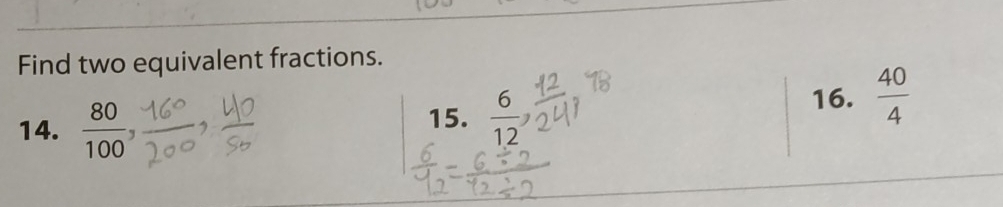 Find two equivalent fractions.
14. 80/100, 160/200, 40/50
15. 6/12, 12/24, 18
6/12 = 6÷2/12÷2
16. 40/4